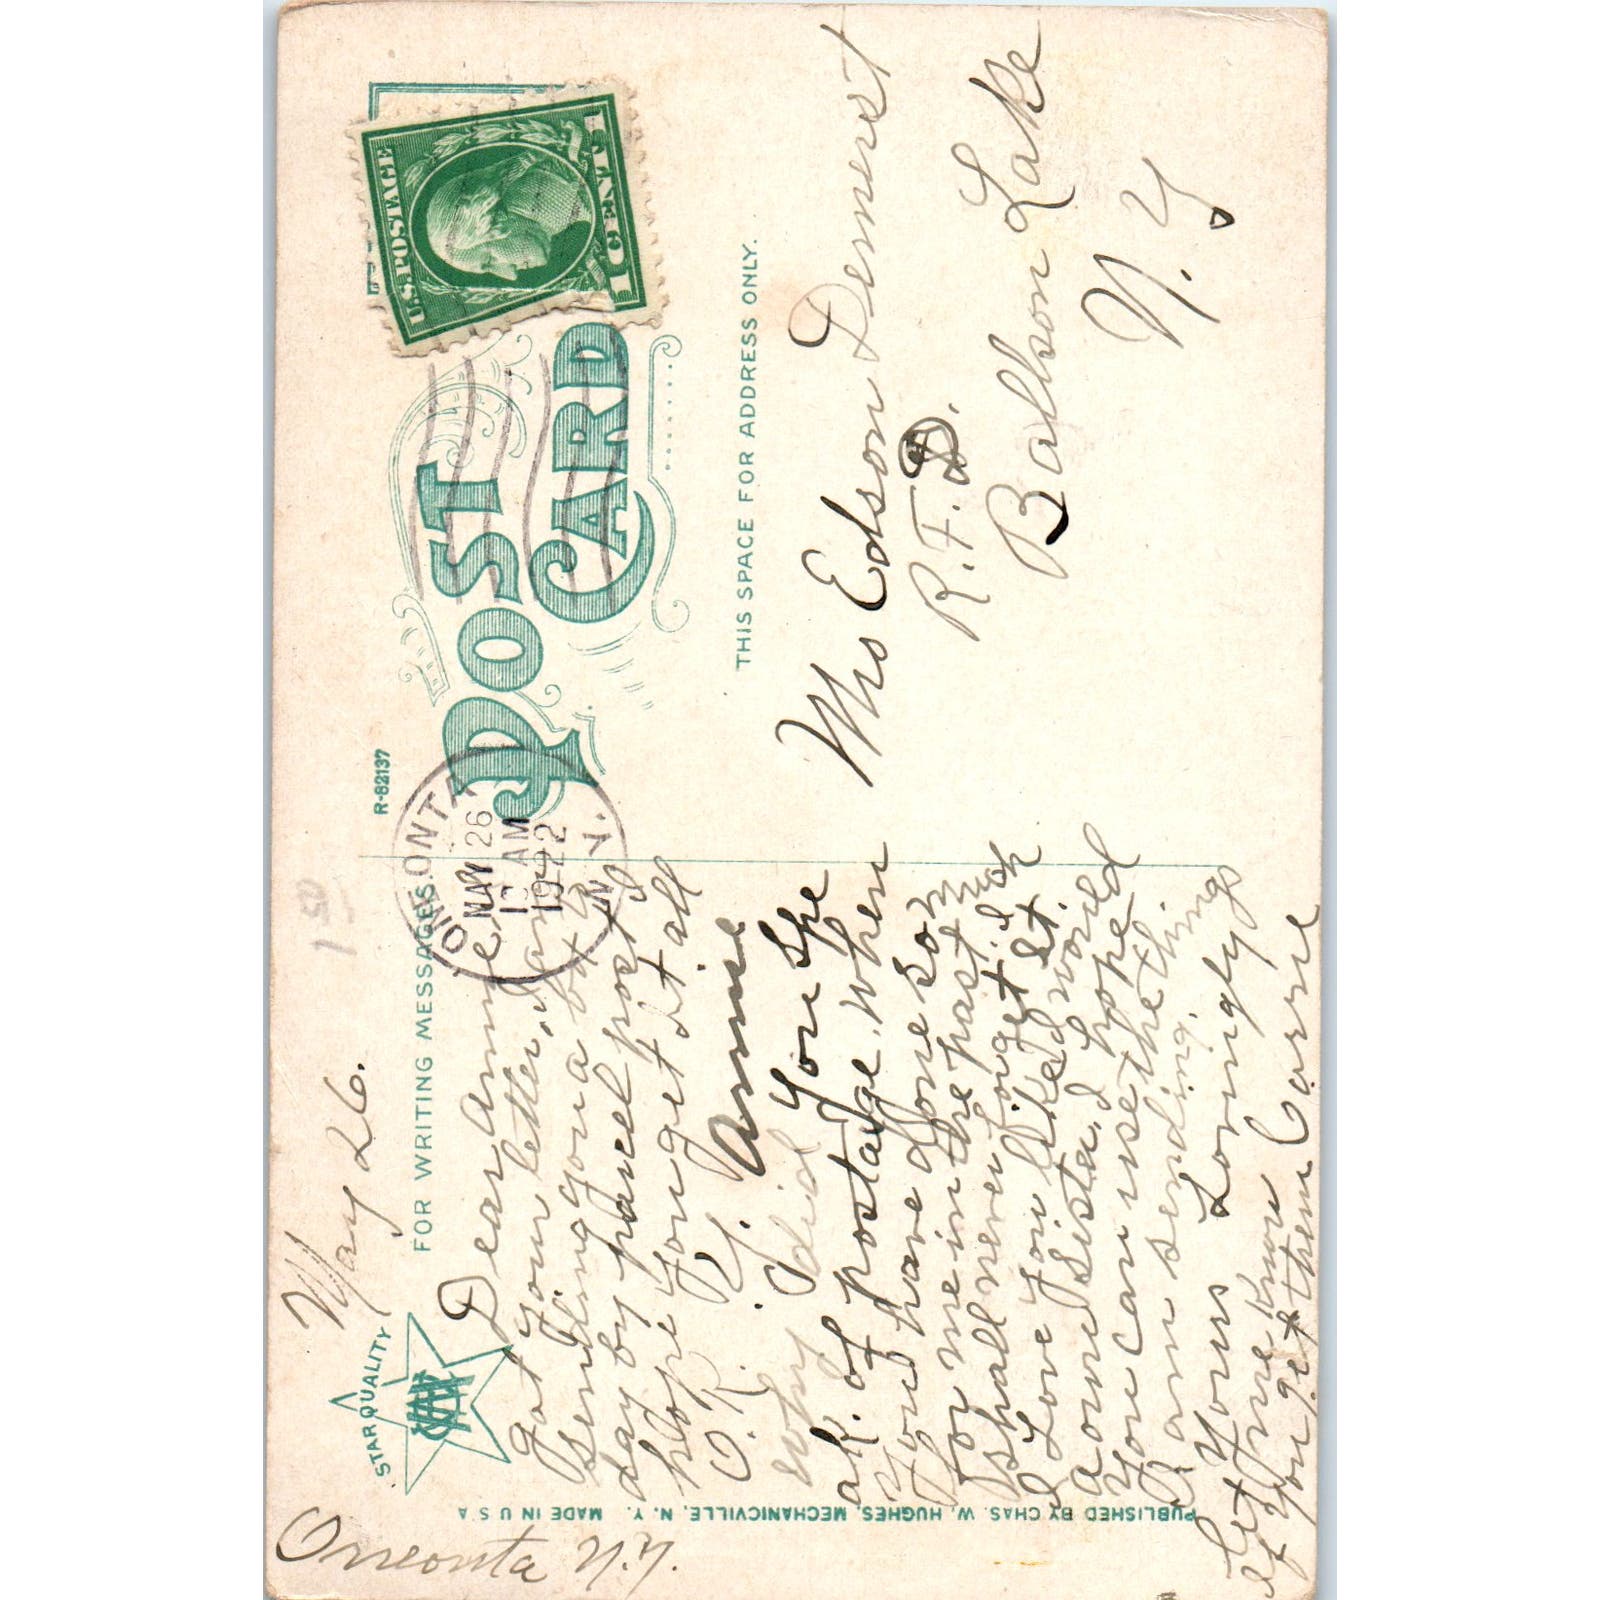 Oneonta N.Y.
May 26.
STAR QUALITY
FOR WRITING MESSAGES.
Dear Annie
Got your letter, I am
sending you a box to
day by parcel post I
hope you get it all
O.K.
Annie
why did you spe
ak of postage when
you have done so much
for me in the past I
shall never forget it
I Love you like I would
a own sister, I hope
you can use the things
I am sending.
Yours Lovingly
Let me know
if you get them Carrie
PUBLISHED BY CHAS. W. HUGHES, MECHANICVILLE, N. Y. MADE IN U S A
R-82137
POST
CARD
ONEONTA
MAY 26
12 AM
1922
N.Y.
U.S. POSTAGE
1 CENT 1
THIS SPACE FOR ADDRESS ONLY.
Mrs Edson Demerest
R.F.D.
Ballson Lake
N.Y.